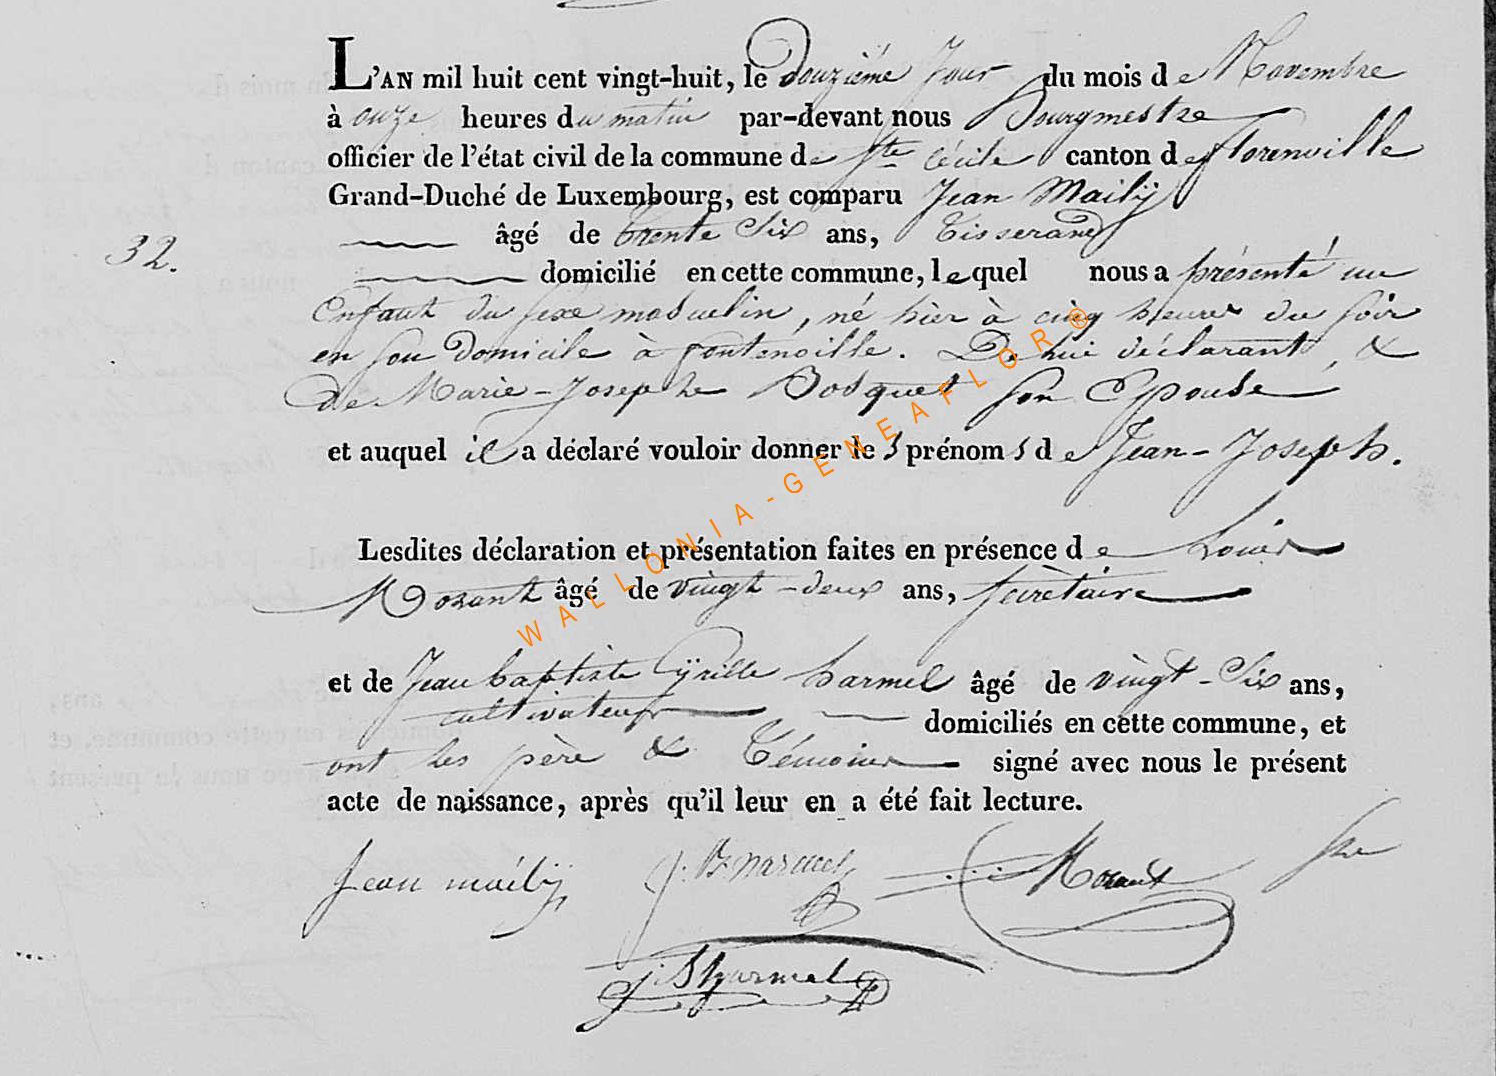 L'AN mil huit cent vingt-huit, le douzième Jour du mois de Novembre
à onze heures du matin par-devant nous Bourgmestre
officier de l'état civil de la commune de Ste Cécile canton de florenville
Grand-Duché de Luxembourg, est comparu Jean Mailÿ
âgé de trente Six ans, Tisserand
32.
domicilié en cette commune, lequel nous a présenté un
Enfant du sexe masculin, né hier à cinq heures du soir
en son Domicile à fontenoille. De lui déclarant, &
de Marie-Josephe Bosquet son Epouse
et auquel il a déclaré vouloir donner les prénoms de Jean-Joseph.
Lesdites déclaration et présentation faites en présence de Louis
Morant âgé de vingt-deux ans, secrètaire
et de Jean baptiste Cÿrille harmel âgé de vingt-Six ans,
cultivateur domiciliés en cette commune, et
ont les père & Témoins signé avec nous le présent
acte de naissance, après qu'il leur en a été fait lecture.
Jean mailÿ J. B. Morant
j. B harmel
WALLONIA-GENEAFLOR®